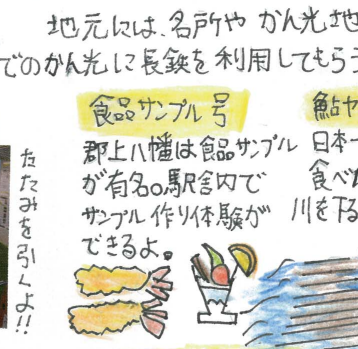 地元には、名所や かん光地
でのかん光に長鉄を利用してもらう
食品サンプル号
郡上八幡は食品サンプル
が有名。駅舎内で
サンプル作り体験が
できるよ。
鮎や
日本一
食べ
川を下る
たたみを引くよ!!